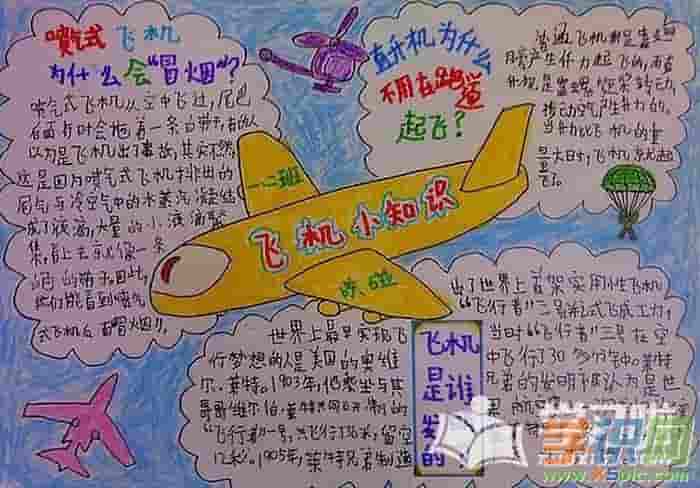 喷气式飞机
为什么会"冒烟"?
喷气式飞机从空中飞过,尾巴
后面有时会拖着一条白带子,有的人
以为是飞机出了事故,其实不然,
这是因为喷气式飞机排出的
尾气与冷空气中的水蒸汽凝结
成了液滴,大量的小液滴聚
集,看上去就像一条
白色的带子。因此,
我们能看到喷气
式飞机后"冒烟"。
直升机为什么
不用在跑道
起飞?
普通飞机都是靠
产生升力起飞的,而直
升机是靠螺旋桨转动,
拨动空气产生升力的。
当升力比飞机的重
量大时,飞机就起
飞了。
一二班
飞机小知识
世界上最早实现飞
行梦想的人是美国的奥维
尔.莱特。1903年,他驾坐与其
哥哥维尔伯.莱特共同制的
"飞行者"一号,共飞行36米,留空
12秒。1905年,莱特兄弟制造
飞机
是谁
发
的?
出了世界上首架实用性飞机
"飞行者"三号
当时"飞行者"三号在空
中飞行了30多分钟。莱特
兄弟的发明
学识网
www.XSpic.com